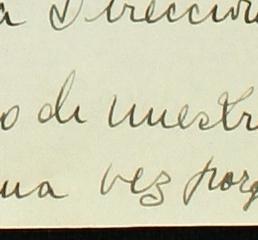 a Direccion
o de nuestr
ua vez porq